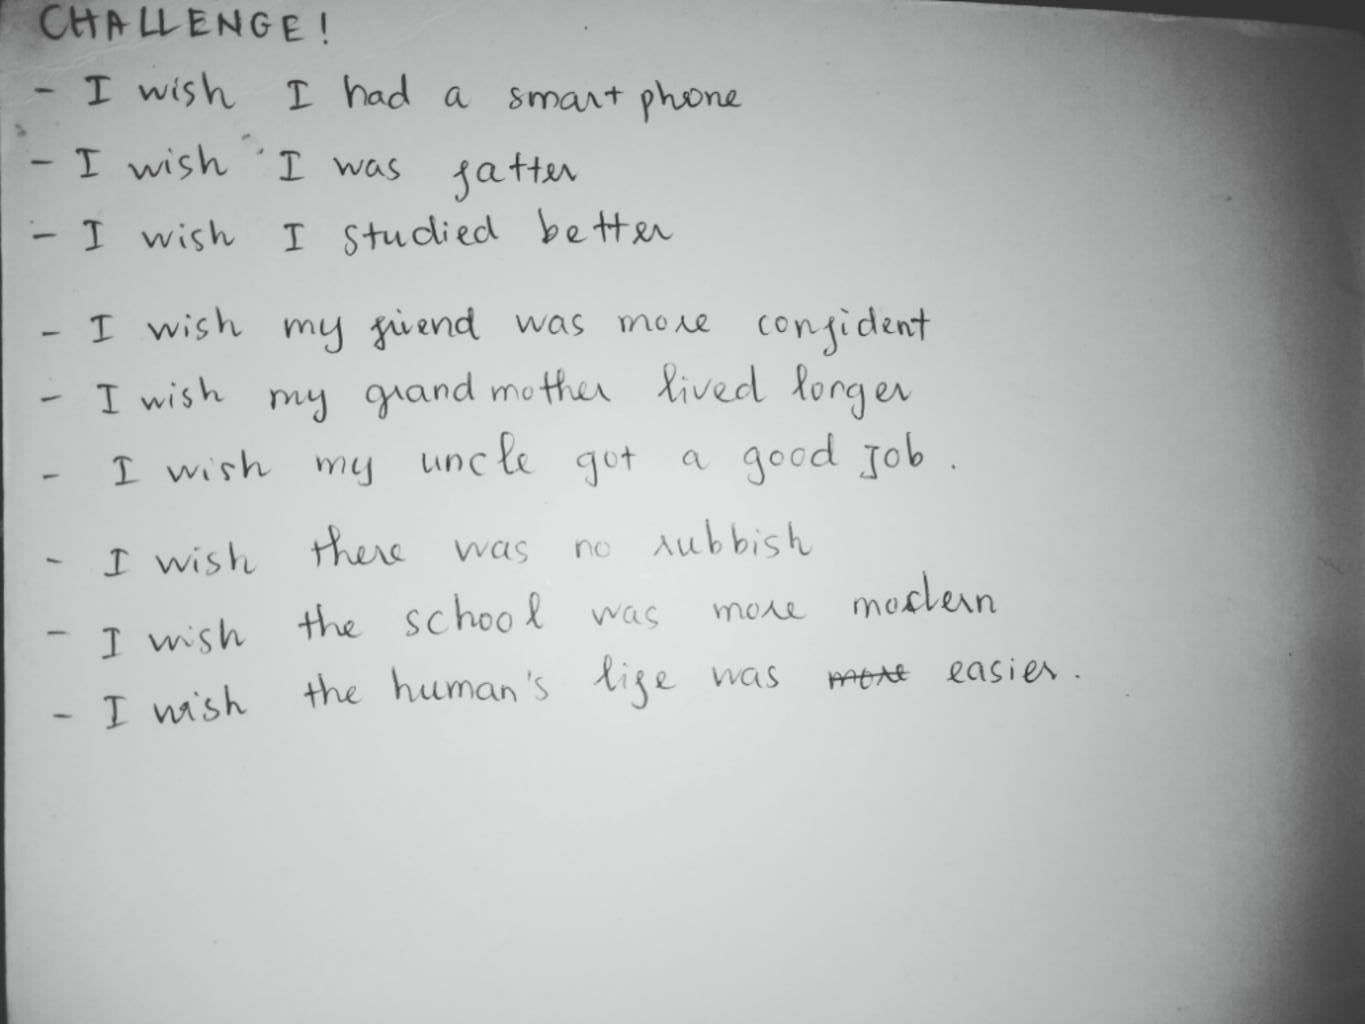 CHALLENGE!
- I wish I had a smart phone
- I wish I was fatter
- I wish I studied better
- I wish my friend was more confident
- I wish my grand mother lived longer
- I wish my uncle got a good Job.
- I wish there was no rubbish
- I wish the school was more modern
- I wish the human's life was more easier.